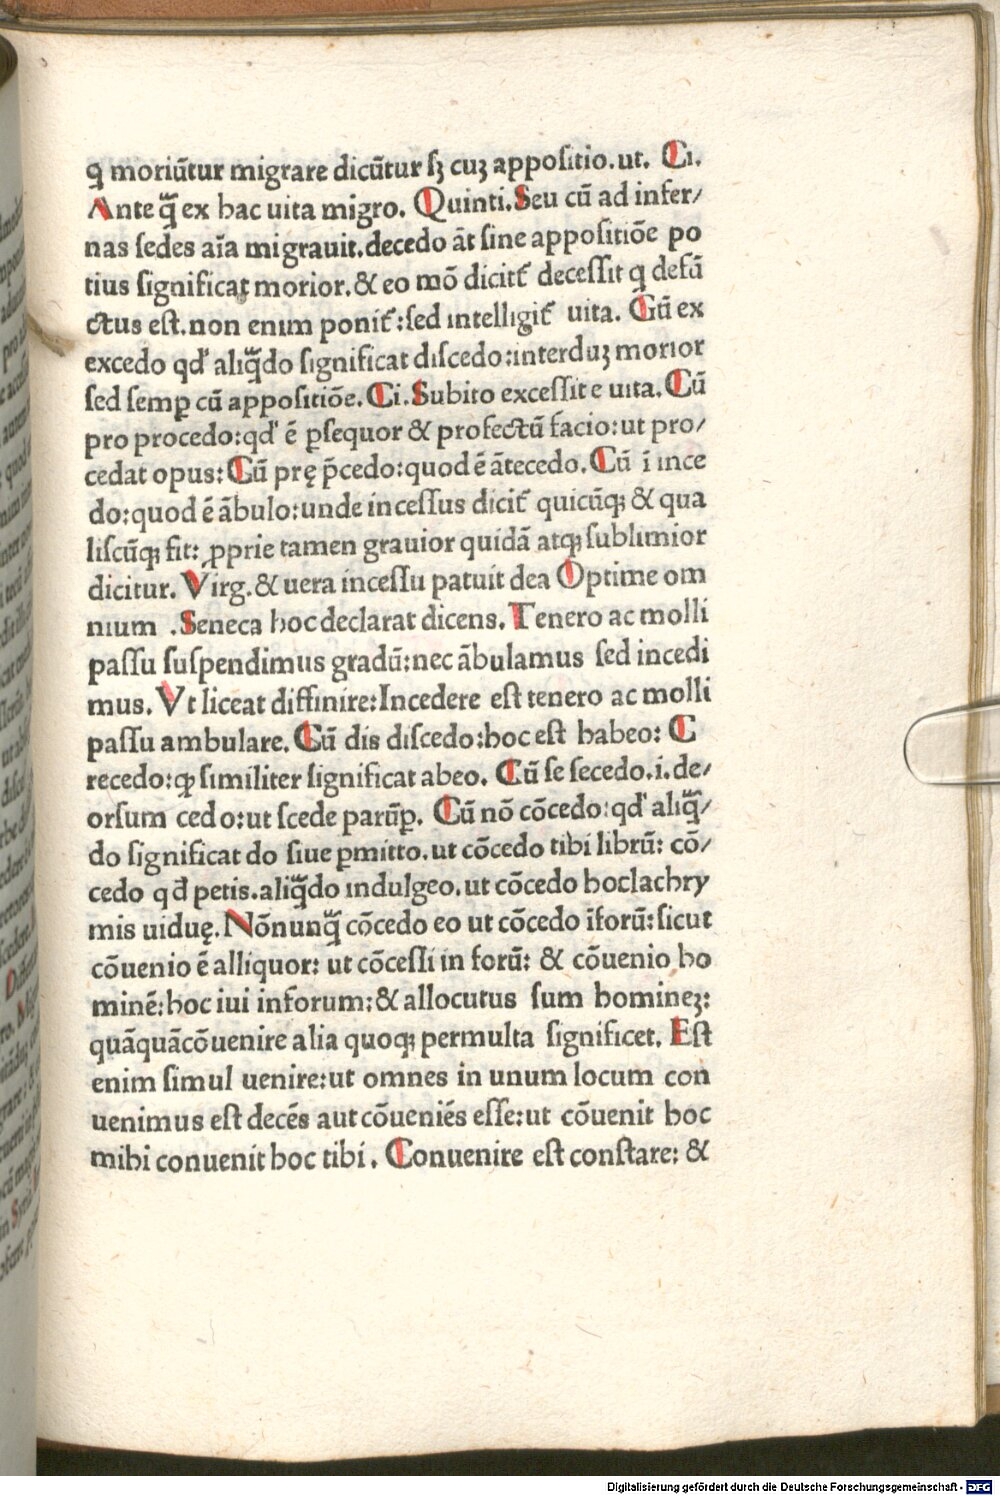 ꝗ moriūtur migrare dicūtur sꝫ cuꝫ appositio.ut. Ci.
Ante q̄ ex hac uita migro. Quinti.Seu cū ad infer/
nas sedes aīa migrauit.decedo āt sine appositiōe po
tius significat morior.& eo mō dicit᷑ decessit ꝗ defū
ctus est.non enim ponit᷑:sed intelligit᷑ uita. Cū ex
excedo qđ aliq̄do significat discedo:interduꝫ morior
sed semꝑ cū appositiōe.Ci.Subito excessit e uita.Cū
pro procedo:qđ ē ꝑsequor & profectū facio:ut pro/
cedat opus:Cū prę p̄cedo:quod ē ātecedo.Cū ī ince
do:quod ē ābulo:unde incessus dicit᷑ quicūqꝫ & qua
liscūqꝫ fit: ꝓprie tamen grauior quidā atqꝫ sublimior
dicitur. Virg.& uera incessu patuit dea Optime om
nium .Seneca hoc declarat dicens. Tenero ac molli
passu suspendimus gradū:nec ābulamus sed incedi
mus. Vt liceat diffinire:Incedere est tenero ac molli
passu ambulare. Cū dis discedo:hoc est habeo: C
recedo:ꝙ similiter significat abeo. Cū se secedo.i.de/
orsum cedo:ut scede parūꝑ. Cū nō cōcedo:qđ aliq̄/
do significat do siue ꝑmitto.ut cōcedo tibi librū: cō/
cedo qđ petis.aliq̄do indulgeo.ut cōcedo hoclachry
mis uiduę.Nōnunq̄ cōcedo eo ut cōcedo īforū:sicut
cōuenio ē alliquor: ut cōcessi in forū: & cōuenio ho
minē:hoc iui inforum:& allocutus sum homineꝫ:
quāquācōuenire alia quoqꝫ permulta significet. Est
enim simul uenire:ut omnes in unum locum con
uenimus est decēs aut cōueniēs esse:ut cōuenit hoc
mihi conuenit hoc tibi. Conuenire est constare: &
Digitalisierung gefördert durch die Deutsche Forschungsgemeinschaft - DFG